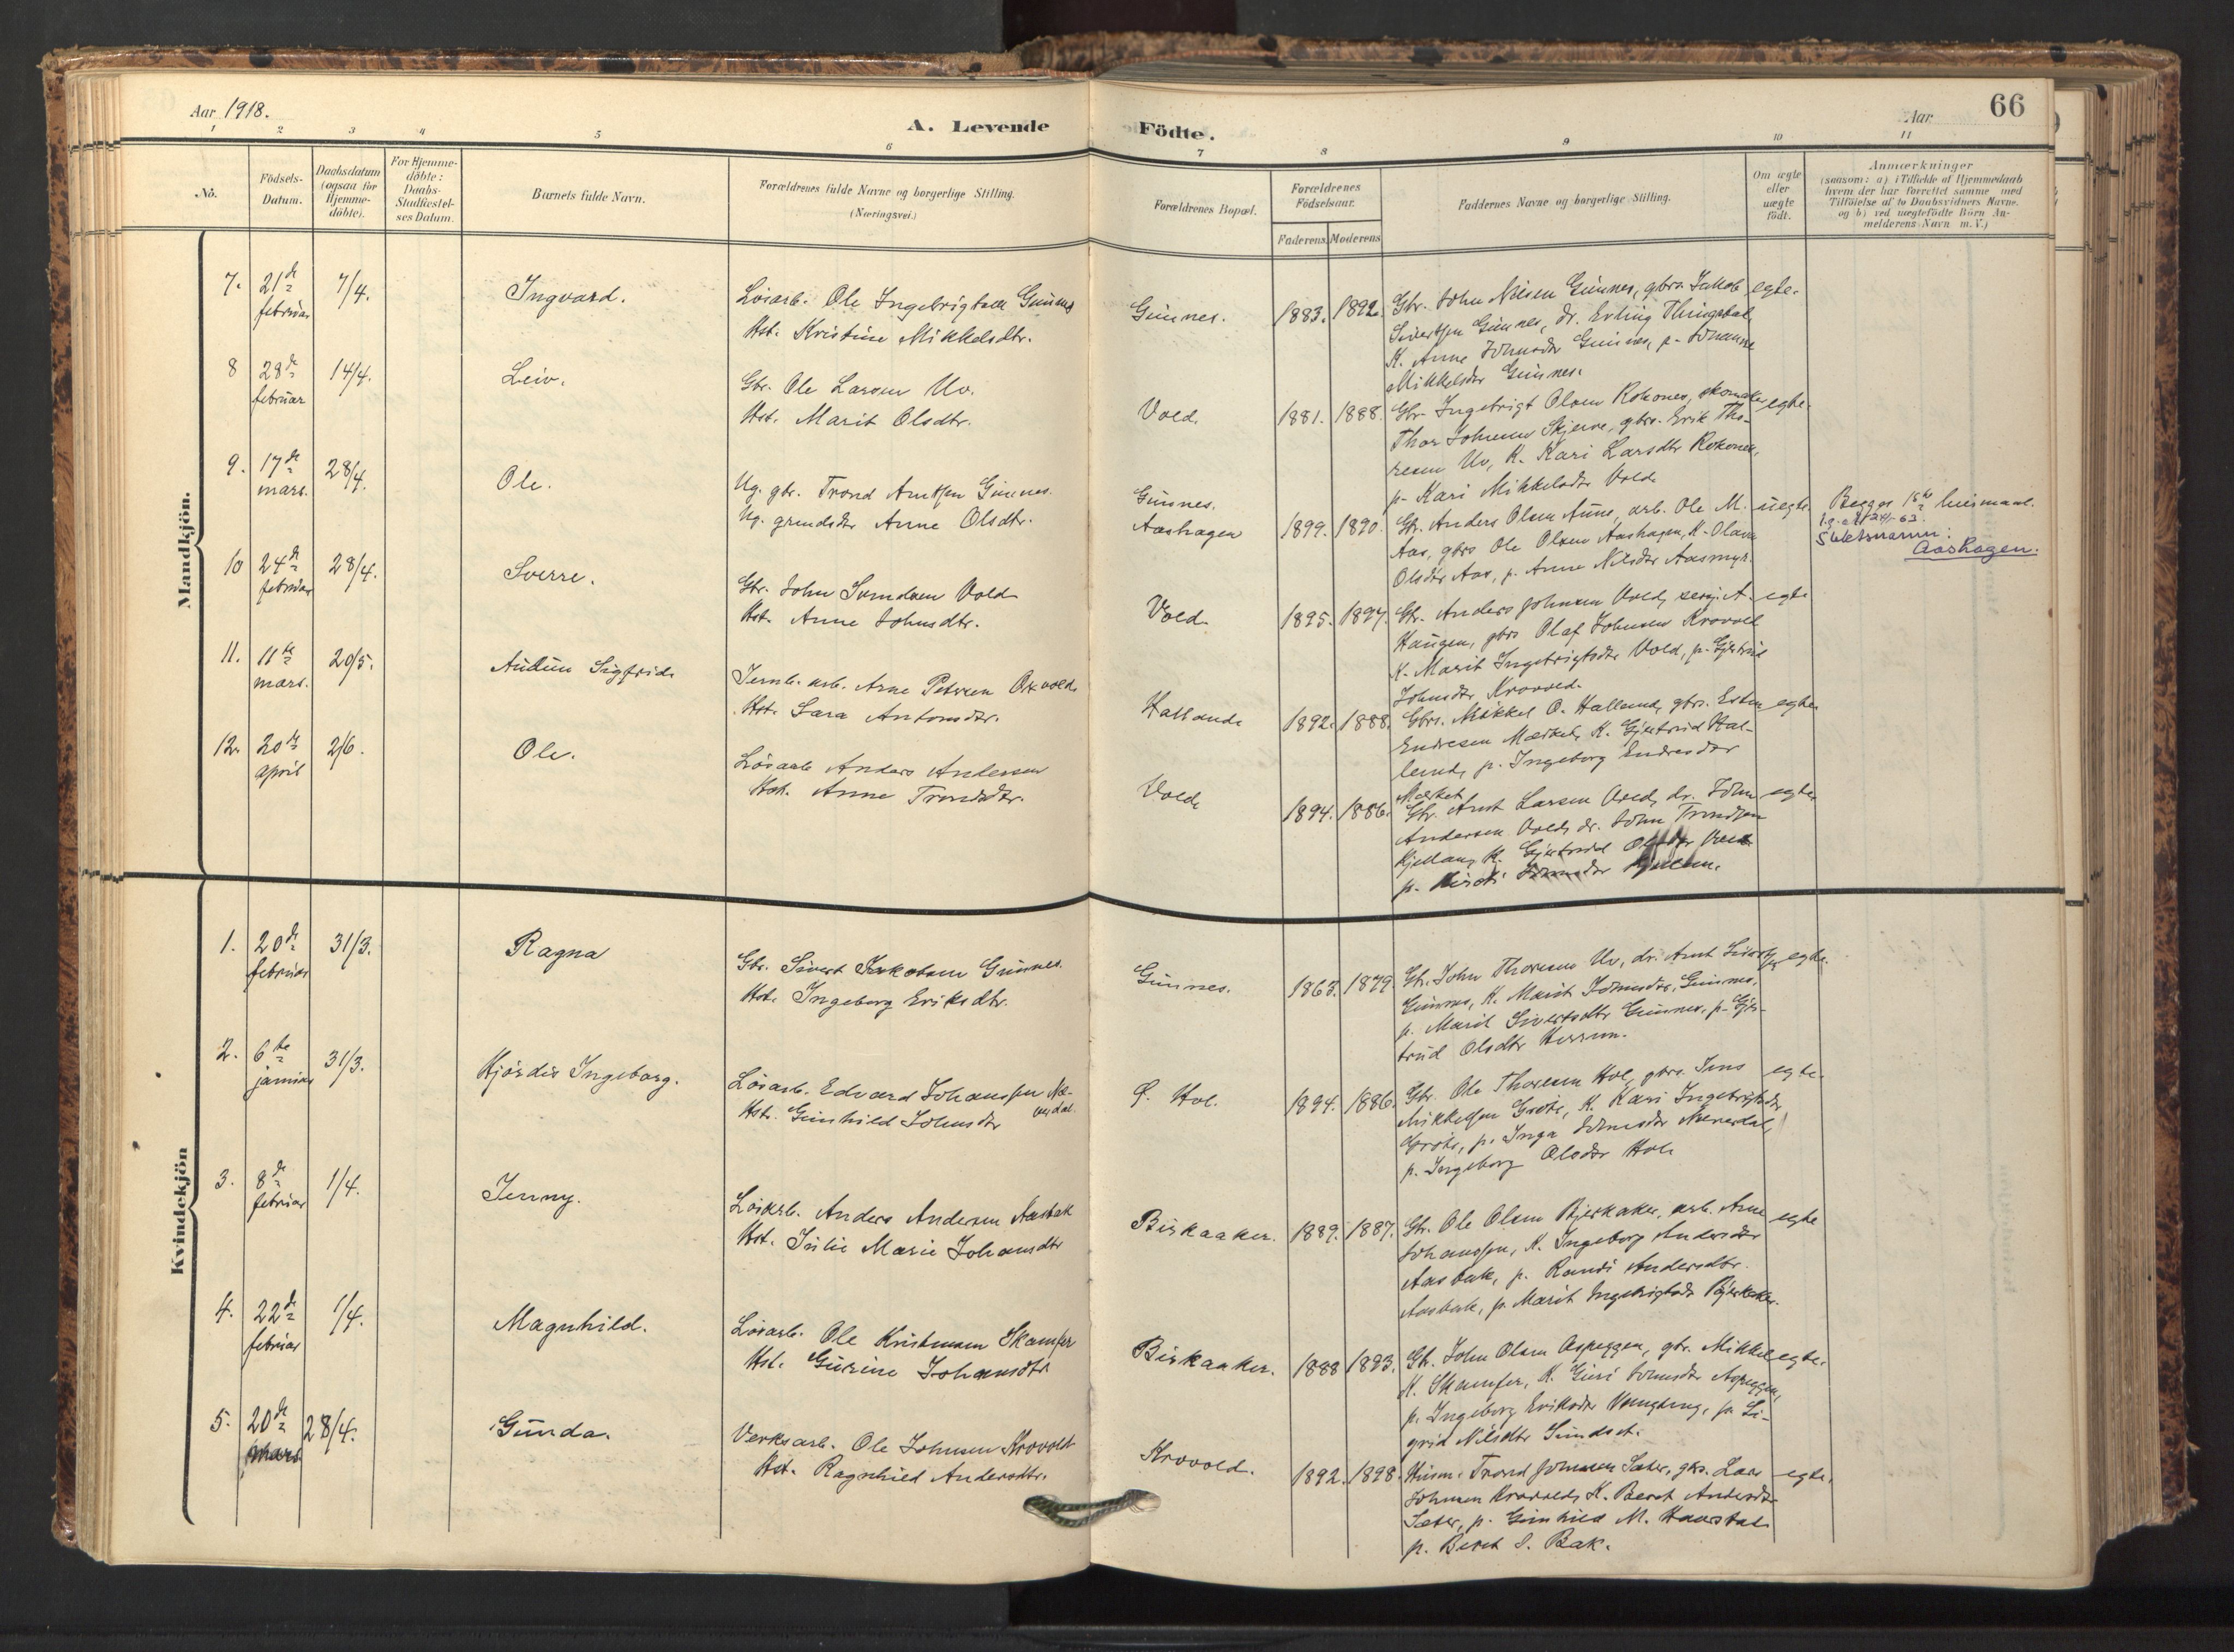 Aar 1918.
A. Levende
Födte.
Aar
66
1 2 3 4 5 6 7 8 9 10 11
No.
Födsels-
Datum.
Daabsdatum
(ogsaa for
Hjemme-
döbte).
For Hjemme-
döbte:
Daabs-
Stadfæstel-
ses Datum.
Barnets fulde Navn.
Forældrenes fulde Navne og borgerlige Stilling.
(Næringsvei.)
Forældrenes Bopæl.
Forældrenes
Födselsaar.
Faderens. Moderens
Faddernes Navne og borgerlige Stilling.
Om ægte
eller
uægte
födt.
Anmærkninger
(saasom: a) i Tilfælde af Hjemmedaab
hvem der har forrettet samme med
Tilföielse af to Daabsvidners Navne.
og b) ved uægtefödte Börn An-
melderens Navn m. V.)
Mandkjön.
7. 21de februar 7/4. Ingvard.
Lösarb. Ole Ingebrigtsen Gunnes
Hst. Kristine Mikkelsdtr.
Gunnes. 1883. 1892.
Gbr. John Nilsen Gunnes, gbrs. Jakob
Sivertsen Gunnes, dr. Erling Thingstad
K. Anne Johnsdtr Gunnes, p. Johanne
Mikkelsdtr Gunnes.
egte.
8 28de februar 14/4. Leiv.
Gbr. Ole Larsen Uv.
Hst. Marit Olsdtr.
Vold. 1881. 1888.
Gbr. Ingebrigt Olsen Rokones, skomaker
Thor Johnsen Skjerve, gbrs. Erik Tho-
resen Uv, K. Kari Larsdtr Rokones,
p. Kari Mikkelsdtr Vold.
egte.
9. 17de mars. 28/4. Ole.
Ug. gbr. Trond Arntsen Gunnes.
Ug. grmdsdtr Anne Olsdtr.
Gunnes.
Aashagen 1899. 1890.
Gbr. Anders Olsen Aune, arb. Ole M.
Aas, gbrs Ole Olsen Aashagen, K. Olava
Olsdtr Aas, p. Anne Nilsdtr Aasmyr.
uegte.
Begges 1ste leiermaal.
Slektsnavn:
Aashagen.
10 24de februar 28/4. Sverre.
Gbr. John Svendsen Vold
Hst. Anne Johnsdtr.
Vold. 1895. 1897.
Gbr. Anders Johnsen Vold, serj. A.
Haugen, gbrs Olaf Johnsen Krovold
K. Marit Ingebrigtsdtr Vold, p. Gjertrud
Johnsdtr Krovold.
egte
11. 11te mars. 20/5. Audun Sigfrid.
Jernb. arb. Arne Petersen Oxvold.
Hst. Sara Antonsdtr.
Halland. 1892. 1888.
Gbrs. Mikkel O. Halland, gbr. Esten
Endresen Mærket, K. Gjertrud Hal-
land, p. Ingeborg Endresdtr
Mærket
egte
12. 20de april 2/6. Ole.
Lösarb Anders Andersen
Hst. Anne Trondsdtr.
Vold. 1894. 1886.
Gbr. Arnt Larsen Vold, dr. John
Andersen Vold, dr. John Trondsen
K. Gjertrud Olsdtr Vold
p.
egte
Kvindekjön
1. 20de februar 31/3. Ragna
Gbr. Sivert Jakobsen Gunnes.
Hst. Ingeborg Eriksdtr.
Gunnes. 1863. 1879.
Gbr. John Thoresen Uv, dr. Arnt Sivertsen
Gunnes, K. Marit Johnsdtr. Gunnes,
p. Marit Sivertsdtr Gunnes, p. Gjer-
trud Olsdtr
egte.
2. 6te januar 31/3. Hjördis Ingeborg.
Lösarb. Edvard Johansen Næ-
verdal.
Hst. Gunhild Johnsdtr
Hol. 1894. 1886.
Gbr. Ole Thoresen Hol, gbrs. Jens
Mikkelsen Gröte, K. Kari Ingebrigtsdtr
Gröte, p. Inga Johnsdtr Næverdal,
p. Ingeborg Olsdtr Hol.
egte.
3. 8de februar 1/4. Jenny.
Lösarb. Anders Andersen Aasbak
Hst. Julie Marie Johansdtr
Birkaaker. 1889. 1887.
Gbr. Ole Olsen Bjerkaker, arb. Arne
Johansen, K. Ingeborg Andersdtr
Aasbak, p. Randi Andersdtr.
Aasbak, p. Marit Ingebrigtsdtr Bjerkaker.
egte
4. 22de februar 1/4. Magnhild.
Lösarb. Ole Kristensen Skamfer
Hst. Gurine Johansdtr
Birkaaker. 1888 1893.
Gbr. John Olsen Aspeggen, gbr. Mikkel
K. Skamfer, K. Guri Johnsdtr Aspeggen,
p. Ingeborg Eriksdtr p. Si-
grid Nilsdtr Sundset.
egte.
5. 20de mars 28/4. Gunda.
Verksarb. Ole Johnsen Krovold
Hst. Ragnhild Andersdtr.
Krovold. 1892. 1898.
Husm. Trond Johnsen Sæter, gbr. Lars
Johnsen Krovold, K. Beret Andersdtr
Sæter, p. Gunhild M. Haarstad.
p. Beret S. Bak.
egte.